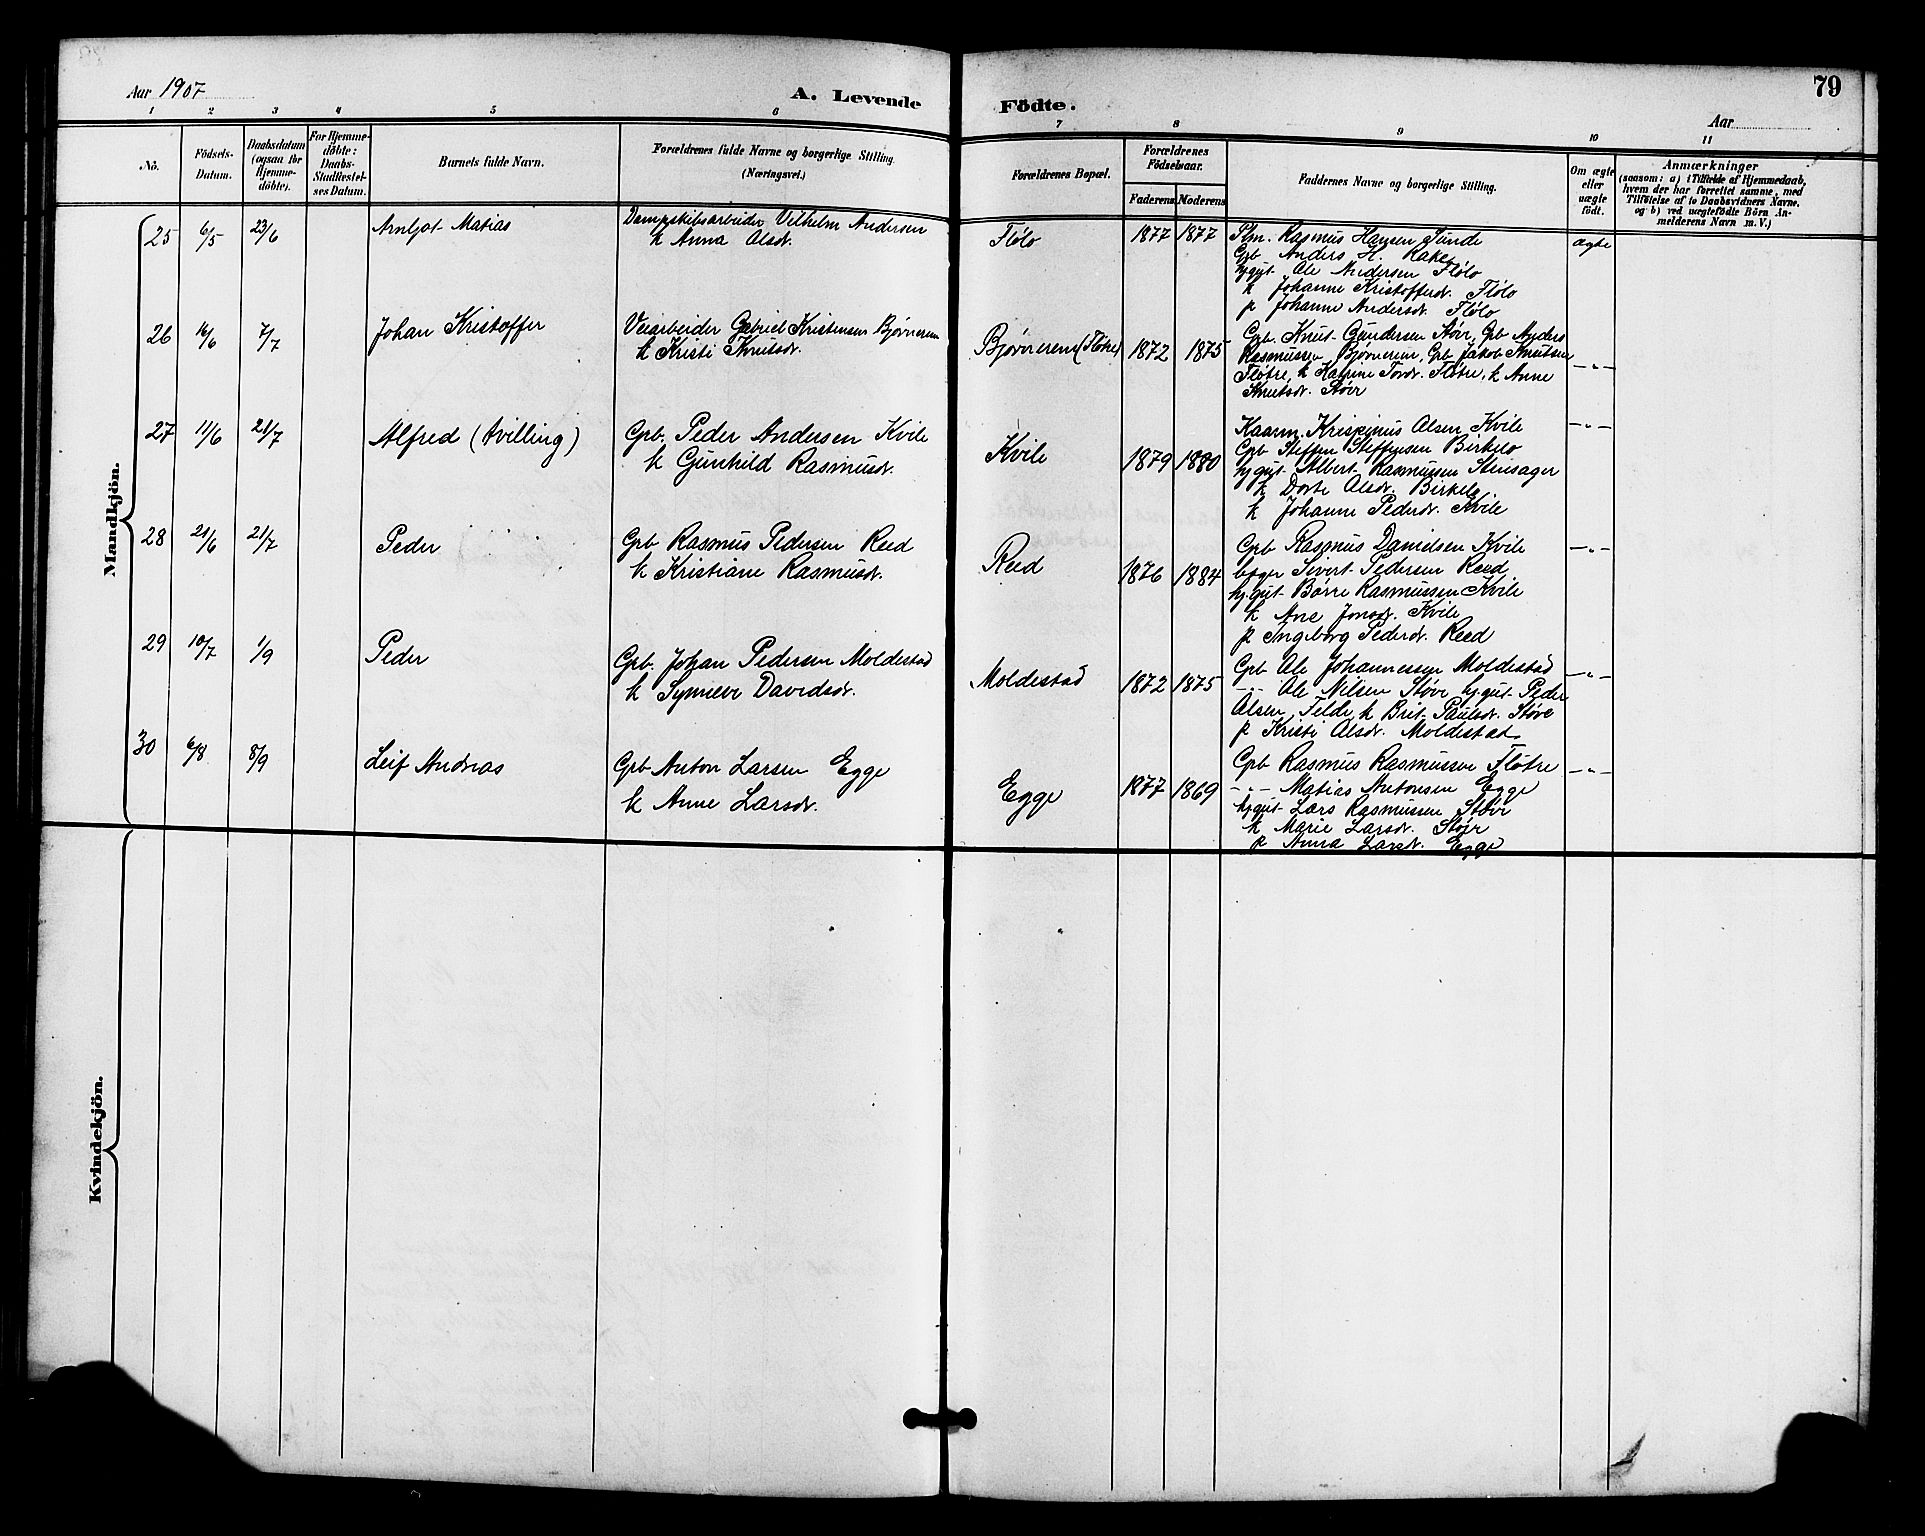 Aar 1907
A. Levende Födte.
79
Aar
1 2 3 4 5 6 7 8 9 10 11
No.
Födsels-Datum.
Daabsdatum (ogsaa for Hjemme-döbte).
For Hjemme-döbte: Daabs-Stadfæstel-ses Datum.
Barnets fulde Navn.
Forældrenes fulde Navne og borgerlige Stilling. (Næringsvei.)
Forældrenes Bopæl.
Forældrenes Födselsaar.
Faderens Moderens
Faddernes Navne og borgerlige Stilling.
Om ægte eller uægte födt.
Anmærkninger
(saasom: a) i Tilfælde af Hjemmedaab,
hvem der har forrettet samme, med
Tilföielse af to Daabsvidners Navne.
og b) ved uægtefödte Börn An-
melderens Navn m. V.)
Mandkjön.
25 6/5 23/6 Arnljot Matias
Dampskibsarbeider Vilhelm Andersen
k Anna Olsdr.
Flølo 1877 1877
Flm. Rasmus Hansen Sunde
Gpb Anders H. Rake
hjgut Ole Andersen Flølo
k Johanne Kristofferdr. Flølo
p Johanne Andersdr. Flølo
ægte
26 16/6 7/7 Johan Kristoffer
Veiarbeider Gabriel Kristensen Bjørnerem
k Kristi Knutsdr.
Bjørnerem (Fløtre) 1872 1875
Gpb. Knut Gundersen Støir, Gpb Anders
Rasmussen Bjørnerem, Gpb Jakob Knutsen
Fløtre, k Katrine Tordr. Fløtre, k Anne
Knutsdr. Støir
—"—
27 11/6 21/7 Alfred (tvilling)
Gpb. Peder Andersen Kvile
k Gunhild Rasmusdr.
Kvile 1879 1880
Kaarm. Krispinus Olsen Kvile
Gpb Steffen Steffensen Birkelo
hjgut Albert Rasmussen Stensager
k Dorte Olsdr. Birkelo
k Johanne Pedersdr. Kvile
—"—
28 21/6 21/7 Peder
Gpb Rasmus Pedersen Reed
k Kristiane Rasmusdr.
Reed 1876 1884
Gpb Rasmus Danielsen Kvile
Sivert Pedersen Reed
hjgut Børre Rasmussen Kvile
k Ane Jonsdr. Kvile
p Ingeborg Pedersdr. Reed
—"—
29 10/7 1/9 Peder
Gpb. Johan Pedersen Moldestad
k Synneve Davidsdr.
Moldestad 1872 1875
Gpb Ole Johannessen Moldestad
—"— Ole Nilsen Støve hjgut Peder
Olsen Felde k Brit Paulsdr. Støve
p Kristi Olsdr. Moldestad
—"—
30 6/8 8/9 Leif Andreas
Gpb Anton Larsen Egge
k Anne Larsdr.
Egge 1877 1869
Gpb Rasmus Rasmussen Fløtre
—"— Matias Antonsen Egge
hjgut Lars Rasmussen Støir
k Marie Larsdr. Støir
p Anna Larsdr. Egge
—"—
Kvindekjön.